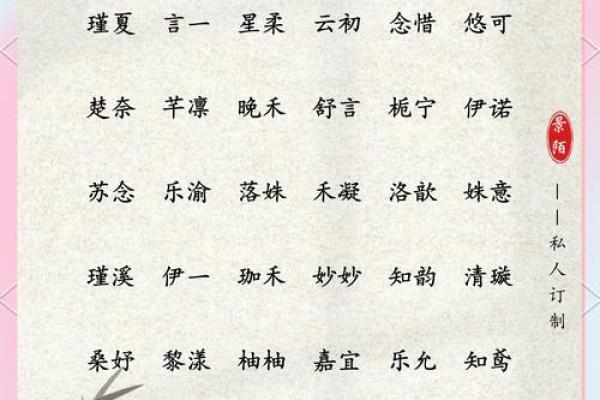 瑾夏 言一 星柔 云初 念惜 悠可
楚奈 芊凛 晚禾 舒言 栀宁 伊诺
苏念 乐渝 落姝 禾凝 洛歆 姝意
瑾溪 伊一 珈禾 妙妙 知韵 清璇
桑妤 黎漾 柚柚 嘉宜 乐允 知鸢
景陌
——私人订制